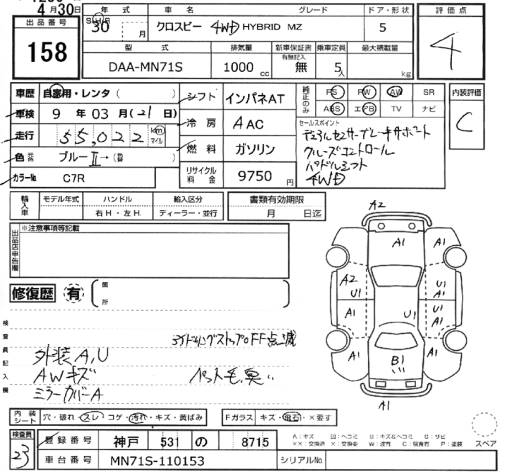 4月30日
出品番号
158
年式
30
月
車名
クロスビー 4WD HYBRID MZ
グレード
ドア・形状
5
評価点
4
型式
DAA-MN71S
排気量
1000 cc
新車保証書
有無記入
無
乗車定員
5人
最大積載量
kg
車歴 自家用・レンタ（ ）
車検 9年 03月（21）日
走行 55,022 km マイル
色 ブルーⅡ→（替 ）
カラーNo. C7R
シフト インパネAT
冷房 AAC
燃料 ガソリン
リサイクル料金 9750円
純正のみ
PS PW AW SR
ABS エアB TV ナビ
セールスポイント
デュアルセンサーブレーキサポート
クルーズコントロール
パドルシフト
4WD
内装評価
C
輸入車
モデル年式
ハンドル
右H・左H
輸入区分
ディーラー・並行
書類有効期限
月 日迄
出品店申告欄
※注意事項等記載
修復歴 有
箇所
検査員記入欄
アイドリングストップOFF点滅
外装A,U
AWキズ
ペット毛,臭い
ミラーカバーA
A2
A1
A1
A1
A2
A1
U1
A1
U1
A1
U1
B1
A1
A1
A1
内装シート
穴・破れ・スレ・コゲ・汚れ・キズ・黄ばみ
Fガラス キズ・飛石・×要す
スペア
検査員
23
登録番号 神戸 531 の 8715
車台番号 MN71S-110153
シリアルNo.